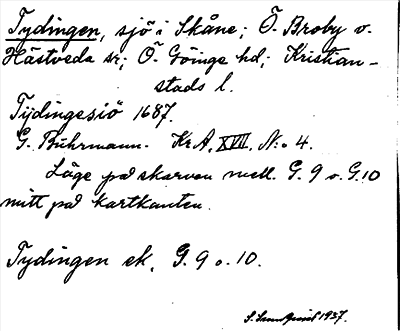 Tydingen, sjö i Skåne; Ö. Broby o.
Hästveda sr; Ö. Göinge hd; Kristian-
stads l.
Tijdingesiö 1687.
G. Buhrmann. KrA, XVII, N:o 4.
Läge på skarven mell. G. 9 o. G. 10
mitt på kartkanten.
Tydingen ek. G. 9 o. 10.
S. 1937.